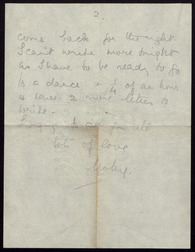 2.
come back for the night
I can't write more tonight
as I have to be ready to go
to a dance in ¾ of an hour
& have 2 more letters to
write.
all
lots of love